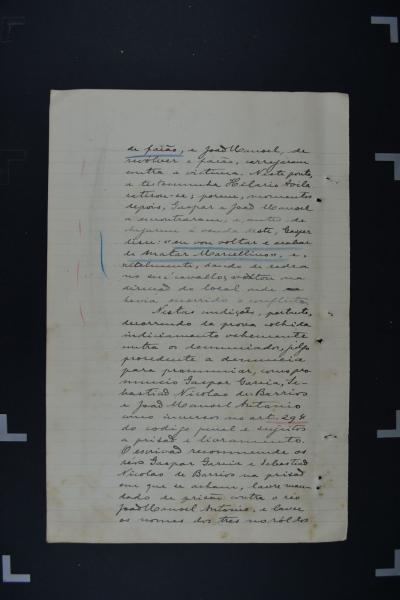 de facão, e João Manoel, de
revólver e facão, carregaram
contra a victima. Neste ponto,
a testemunha Hilario Avila
retirou-se; porem, momentos
depois, Gaspar e João Manoel
a encontraram e, antes de
chegarem á venda deste, Gaspar
disse: «eu vou voltar e acabar
de matar Marcellino», e,
effectivamente, dando de redea
no seu cavallo, voltou na
direcção do local onde
havia occorrido o conflicto.
Nestas condições, portanto,
decorrendo da prova colhida
indiciamento vehemente
contra os denunciados, julgo
procedente a denuncia
para pronunciar, como pro-
nuncio Gaspar Garcia, Se-
bastião Nicolas de Barrios
e João Manoel Antonio
como incursos no art. 294
do codigo penal e sujeitos
a prisão e livramento.
O escrivão recommende os
réos Gaspar Garcia e Sebastião
Nicolas de Barrios na prisão
em que se acham, lavre man-
dado de prisão contra o réo
João Manoel Antonio, e lance
os nomes dos tres no rol dos